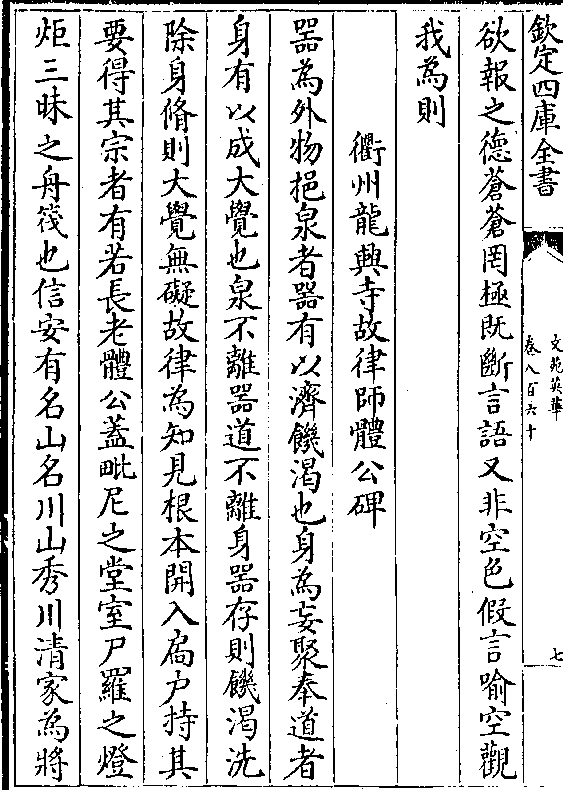 欽定四庫全書
文苑英華
卷八百六十
七
欲報之德蒼蒼罔極既斷言語又非空色假言喻空觀
我為則
衢州龍興寺故律師體公碑
器為外物挹泉者器有以濟饑渇也身為妄聚奉道者
身有以成大覺也泉不離器道不離身器存則饑渇洗
除身脩則大覺無礙故律為知見根本開入扄户持其
要得其宗者有若長老體公蓋毗尼之堂室尸羅之燈
炬三昧之舟筏也信安有名山名川山秀川清家為將